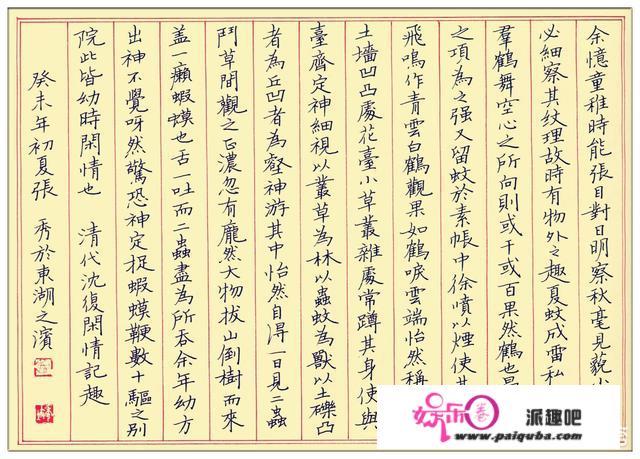 余憶童稚時能張目對日明察秋毫見藐
必細察其紋理故時有物外之趣夏蚊成雷私
羣鶴舞空心之所向則或千或百果然鶴也
之項為之强又留蚊於素帳中徐噴以煙使其
飛鳴作青雲白鶴觀果如鶴唳雲端怡然稱
土墻凹凸處花臺小草叢雜處常蹲其身使與
臺齊定神細視以叢草為林以蟲蚊為獸以土礫凸
者為丘凹者為壑神游其中怡然自得一日見二蟲
鬥草間觀之正濃忽有龐然大物拔山倒樹而來
盖一癩蝦蟆也舌一吐而二蟲盡為所吞余年幼方
出神不覺呀然驚恐神定捉蝦蟆鞭數十驅之別
院此皆幼時閑情也 清代沈復閑情記趣
癸未年初夏張 秀於東湖之濱
娱乐卷 派趣吧
www.paiquba.com